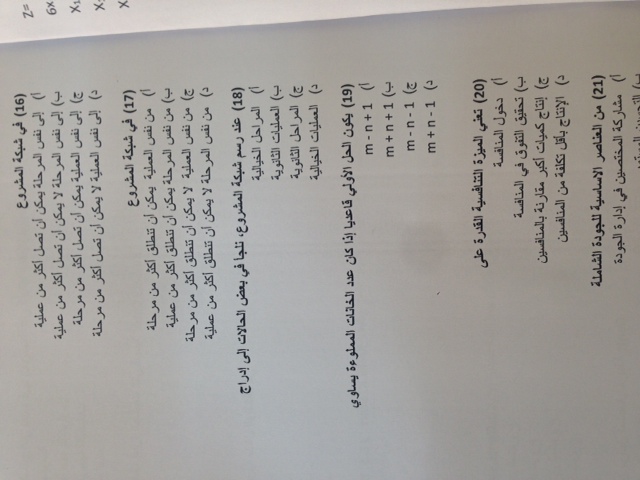 Z=
6x
X₁
X₂
X
(16) في شبكة المشروع
أ) إلى نفس المرحلة يمكن أن تصل أكثر من عملية
ب) إلى نفس المرحلة لا يمكن أن تصل أكثر من عملية
ج) إلى نفس العملية يمكن أن تصل أكثر من مرحلة
د) إلى نفس العملية لا يمكن أن تصل أكثر من مرحلة
(17) في شبكة المشروع
أ) من نفس العملية يمكن أن تنطلق أكثر من مرحلة
ب) من نفس المرحلة يمكن أن تنطلق أكثر من عملية
ج) من نفس العملية لا يمكن أن تنطلق أكثر من مرحلة
د) من نفس المرحلة لا يمكن أن تنطلق أكثر من عملية
(18) عند رسم شبكة المشروع، نلجأ في بعض الحالات إلى إدراج
أ) المراحل الخيالية
ب) العمليات الثانوية
ج) المراحل الثانوية
د) العمليات الخيالية
(19) يكون الحل الأولي قاعديا إذا كان عدد الخانات المملوءة يساوي
أ) m - n + 1
ب) m + n + 1
ج) m - n - 1
د) m + n - 1
(20) تعني الميزة التنافسية القدرة على
أ) دخول المنافسة
ب) تحقيق التفوق في المنافسة
ج) إنتاج كميات أكثر مقارنة بالمنافسين
د) الإنتاج بأقل تكلفة من المنافسين
(21) من العناصر الاساسية للجودة الشاملة
أ) مشاركة المختصين في إدارة الجودة